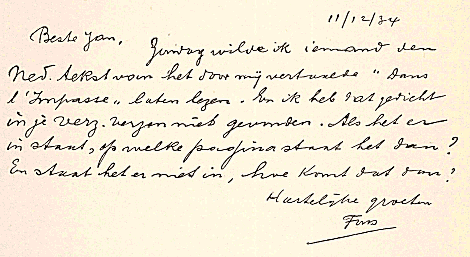 11/12/34
Beste Jan, Zondag wilde ik iemand den
Ned. tekst van het door mij vertaalde "Dans
l'Impasse" laten lezen. En ik heb dat gedicht
in je verz. verzen niet gevonden. Als het er
in staat, op welke pagina staat het dan?
En staat het er niet in, hoe komt dat dan?
Hartelijke groeten